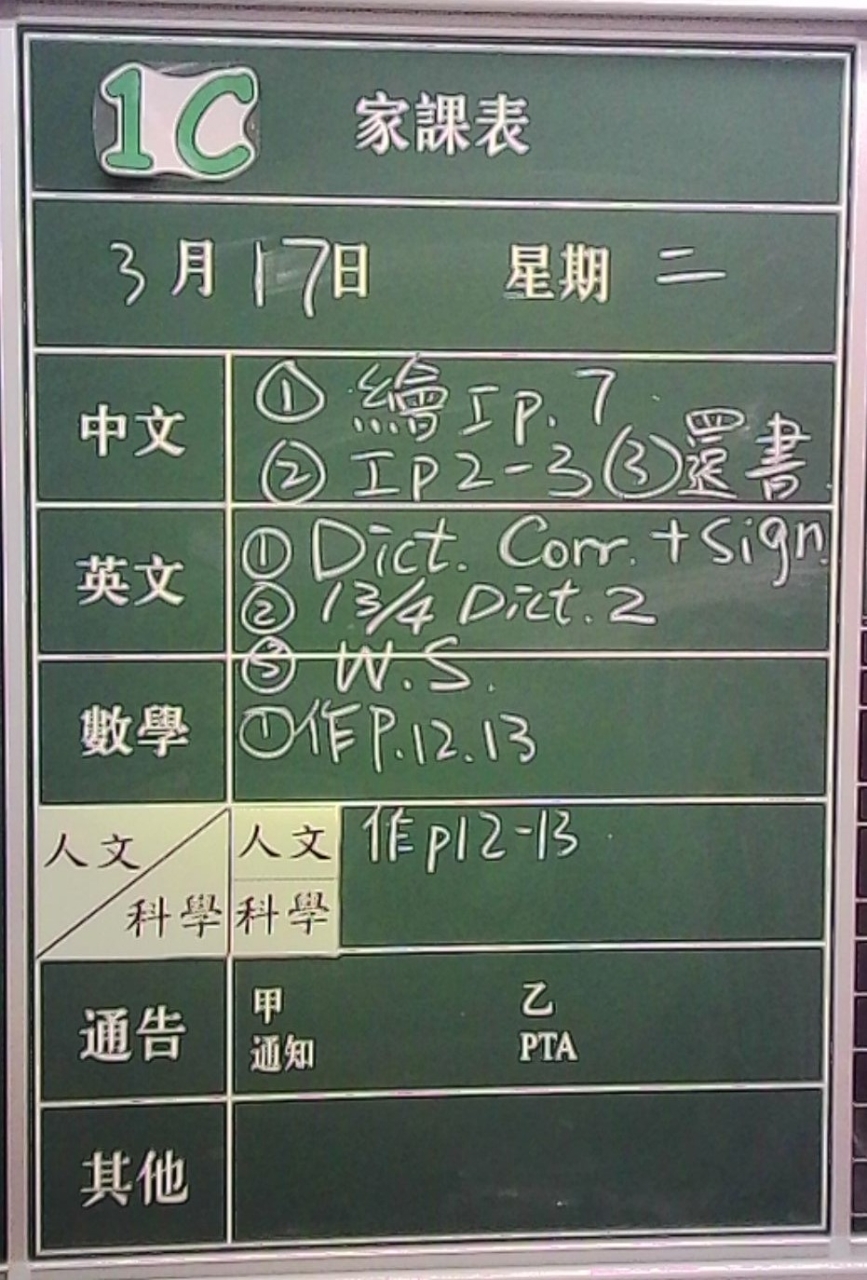 1C 家課表
3月17日 星期二
中文 ① 繪工p.7
② 工p2-3 ③還書
英文 ① Dict. Corr. + sign.
② 13/4 Dict. 2
③ W.S.
數學 ①作P.12.13
人文 科學 人文 作p12-13
科學
通告 甲 乙
通知 PTA
其他